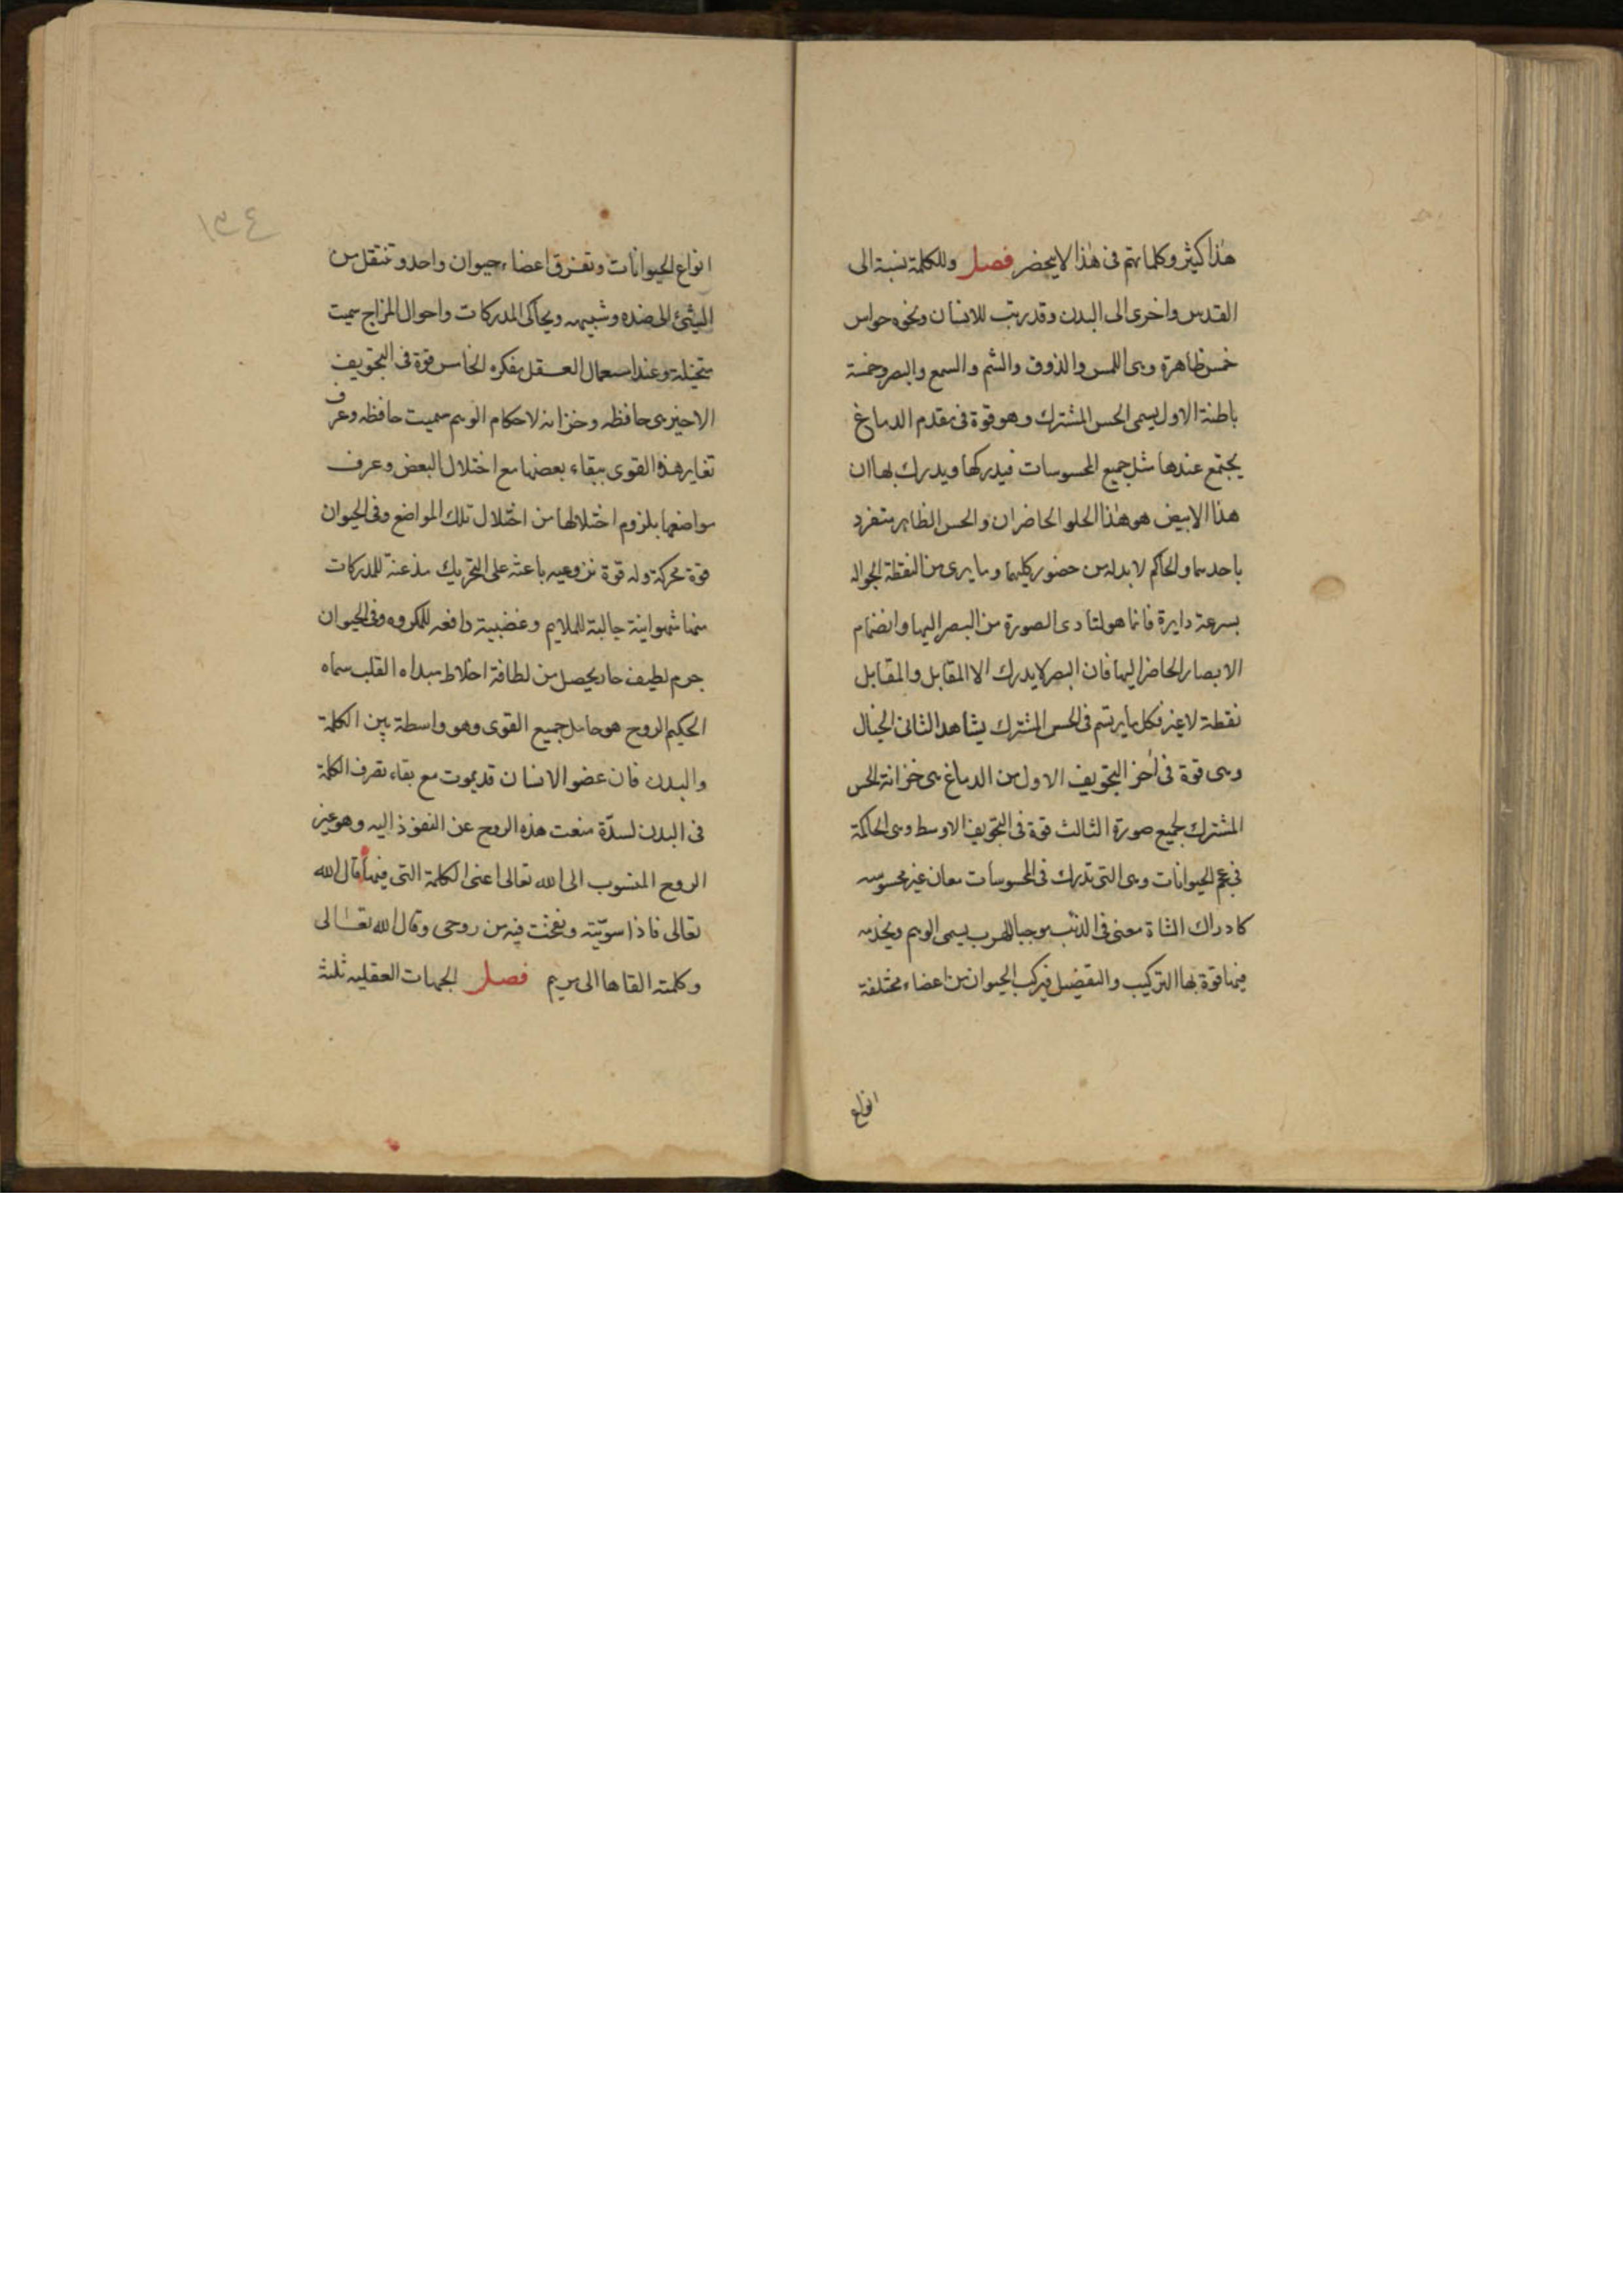 هذا كثير وكلماتهم فى هذا لا يحضر فصل وللكلمة نسبة الى
القدس واخرى الى البدن وقد رتب للانسان ونحوه حواس
خمس ظاهرة وهى اللمس والذوق والشم والسمع والبصر وخمسة
باطنة الاول يسمى الحس المشترك وهو قوة فى مقدم الدماغ
يجتمع عندها مثل جميع المحسوسات فيدركها ويدرك بها ان
هذا الابيض هو هذا الحلو الحاضران والحس الظاهر متفرد
باحدهما والحاكم لا بد له من حضور كليهما وما يرى من النقطة الجواله
بسرعة دايرة فانما هو لتادى الصورة من البصر اليها وانضمام
الابصار الحاضر اليها فان البصر لا يدرك الا المقابل والمقابل
نقطة لا غير فكل ما يرتسم فى الحس المشترك يشاهد الثانى الخيال
وهى قوة فى اخر التجويف الاول من الدماغ هى خزانة الحس
المشترك لجميع صورة الثالث قوة فى التجويف الاوسط وهى الحاكمة
فى عجم الحيوانات وهى التى تدرك فى المحسوسات معان غير محسوسه
كادراك الشاة معنى فى الذئب موجبا للهرب يسمى الوهم ويخدمه
فيها قوة بها التركيب والتفضيل فيركب الحيوان من اعضاء مختلفة
انواع
١٣٤
انواع الحيوانات وتفرق اعضاء حيوان واحد وتنتقل من
الشئ الى ضده وشبيهه ويحاكى المدركات واحوال المزاج سميت
متخيلة وعند استعمال العقل مفكره الخامس قوة فى التجويف
الاخير هى حافظه وخزانه لاحكام الوهم سميت حافظه وعرف
تغاير هذه القوى ببقاء بعضها مع اختلال البعض وعرف
مواضعها بلزوم اختلالها من اختلال تلك المواضع وفى الحيوان
قوة محركة وله قوة نزوعيه باعثه على التحريك مذعنة للمدركات
منها شهوانية جالبة للملايم وغضبية دافعه للمكروه وفى الحيوان
جرم لطيف حار يحصل من لطافة اخلاط مبداه القلب سماه
الحكيم الروح هو حامل جميع القوى وهو واسطة بين الكلمة
والبدن فان عضو الانسان قد يموت مع بقاء تصرف الكلمة
فى البدن لسدّة منعت هذه الروح عن النفوذ اليه وهو غير
الروح المنسوب الى الله تعالى اعنى الكلمة التى فيها قال الله
تعالى فاذا سوّيته ونفخت فيه من روحى وقال الله تعالى
وكلمته القاها الى مريم فصل الجهات العقليه ثلثة